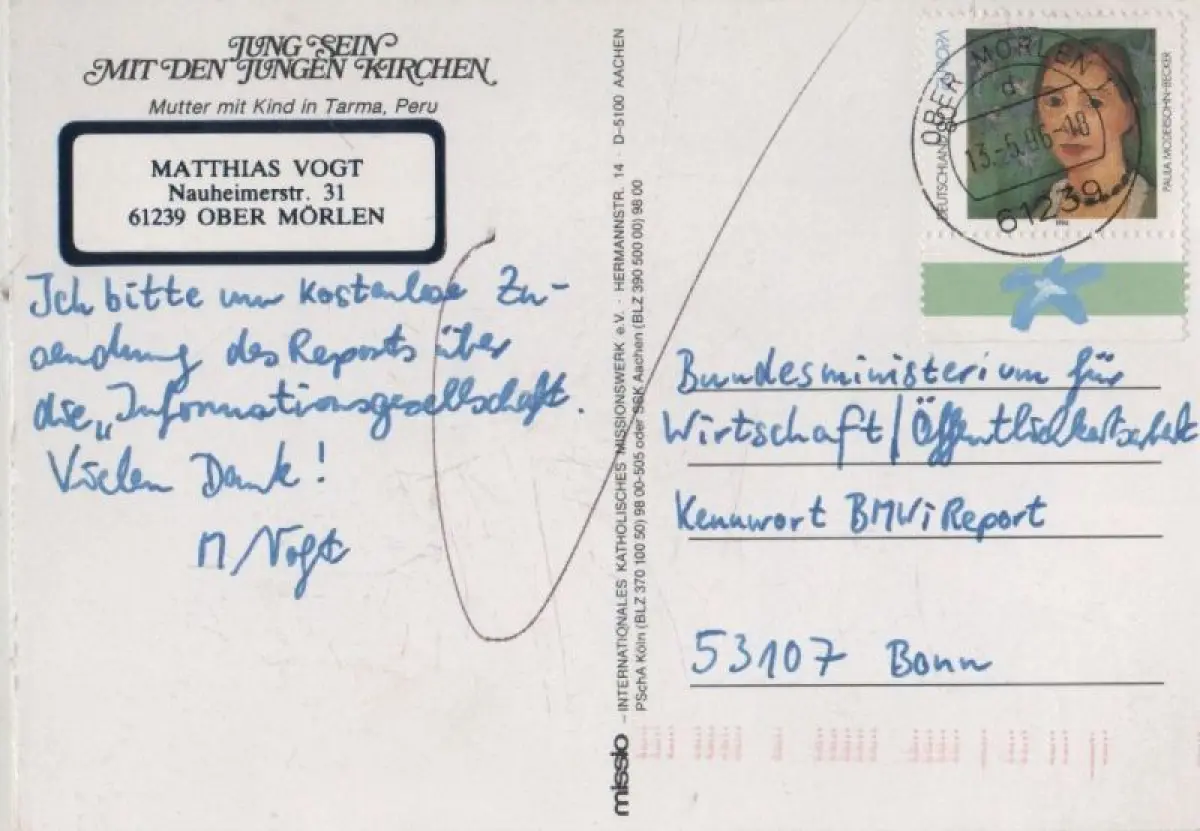 JUNG SEIN
MIT DEN JUNGEN KIRCHEN
Mutter mit Kind in Tarma, Peru
MATTHIAS VOGT
Nauheimerstr. 31
61239 OBER MÖRLEN
Ich bitte um kostenlose Zu-
sendung des Reports über
die „Informationsgesellschaft.
Vielen Dank!
M Vogt
missio – INTERNATIONALES KATHOLISCHES MISSIONSWERK e.V. · HERMANNSTR. 14 · D-5100 AACHEN
PSchA Köln (BLZ 370 100 50) 98 00-505 oder SSK Aachen (BLZ 390 500 00) 98 00
DEUTSCHLAND
EUROPA
PAULA MODERSOHN-BECKER
OBER MÖRLEN 1
d
13.-5.96-18
61239
Bundesministerium für
Wirtschaft/Öffentlichkeitsarbeit
Kennwort BMWi Report
53107 Bonn